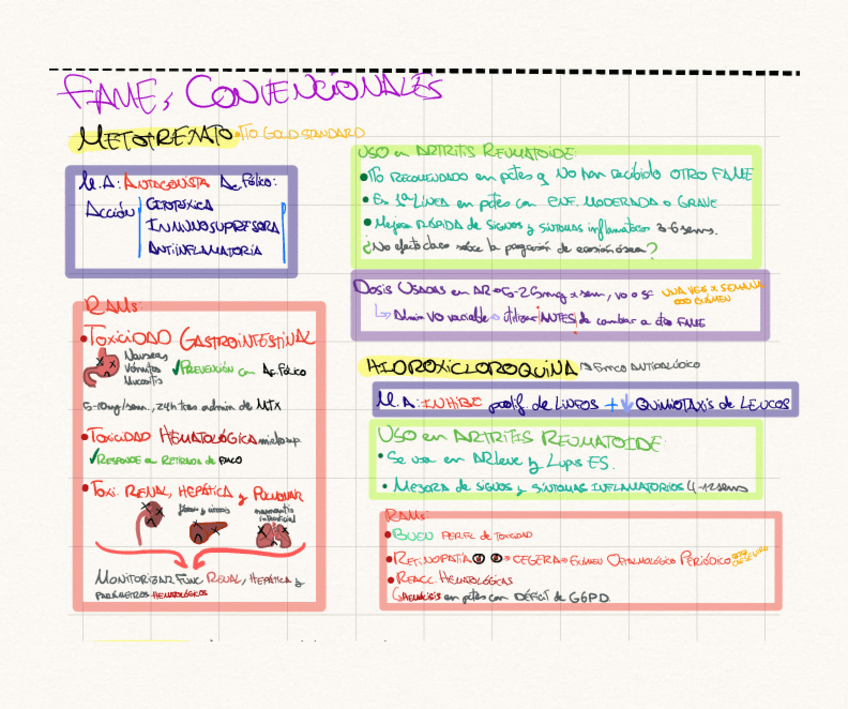 FAMEs CONVENCIONALES
METOTREXATO • TTO GOLD STANDARD
M.A: ANTAGONISTA Ac. Fólico:
Acción
CITOTÓXICA
INMUNOSUPRESORA
ANTIINFLAMATORIA
RAMs:
• TOXICIDAD GASTROINTESTINAL
Nauseas
Vómitos
Mucositis
✓PREVENCIÓN con Ac. FÓLICO
5-10mg/sem, 24h tras admin de MTX
• TOXICIDAD HEMATOLÓGICA mielosup.
✓RESPONDE a RETIRADA de FMCO
• TOXI. RENAL, HEPÁTICA y PULMONAR
fibrosis y cirrosis
neumonitis intersticial
MONITORIZAR FUNC RENAL, HEPÁTICA y
PARÁMETROS HEMATOLÓGICOS
USO en ARTRITIS REUMATOIDE:
• TTO RECOMENDADO en pctes q NO han recibido OTRO FAME
• En 1ª LÍNEA en pctes con ENF. MODERADA o GRAVE
• Mejora RÁPIDA de SIGNOS y SÍNTOMAS inflamatorios 3-6 sems.
¿No efecto claro sobre la progresión de erosión ósea?
DOSIS USADAS en AR→5-25mg x sem, vo o sc UNA VEZ x SEMANA
OJO EXÁMEN
↳ Admin VO variable → utilizar ¡ANTES! de cambiar a otro FAME
HIDROXICLOROQUINA → FMCO ANTIPALÚDICO
M.A: INHIBE prolif. de LINFOS + ↓ QUIMIOTAXIS de LEUCOS
USO en ARTRITIS REUMATOIDE:
• Se usa en AR leve y LUPUS ES.
• MEJORA de SIGNOS y SÍNTOMAS INFLAMATORIOS 4-12 sems
RAMs:
• BUEN PERFIL de TOXICIDAD
• RETINOPATÍA → CEGERA → EXÁMEN OFTALMOLÓGICO PERIÓDICO
• REACC. HEMATOLÓGICAS
↳ HEMÓLISIS en pctes con DÉFICIT de G6PD.